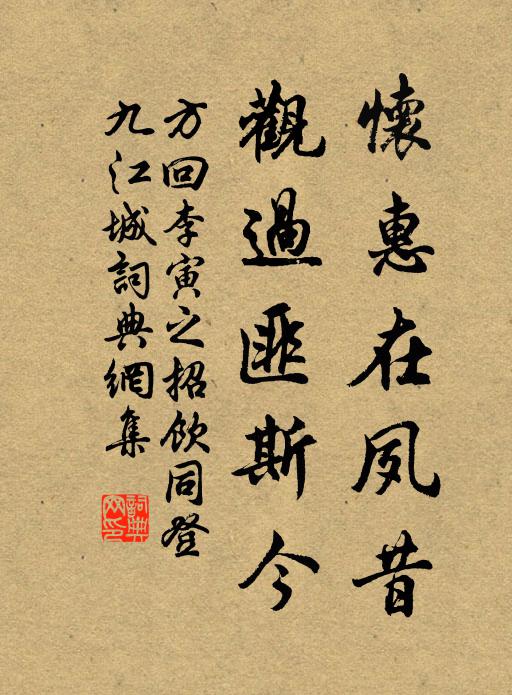 懷惠在夙昔
觀過匪斯今
方回李寅之招飲同登
九江城詞典網集
詞典
网印